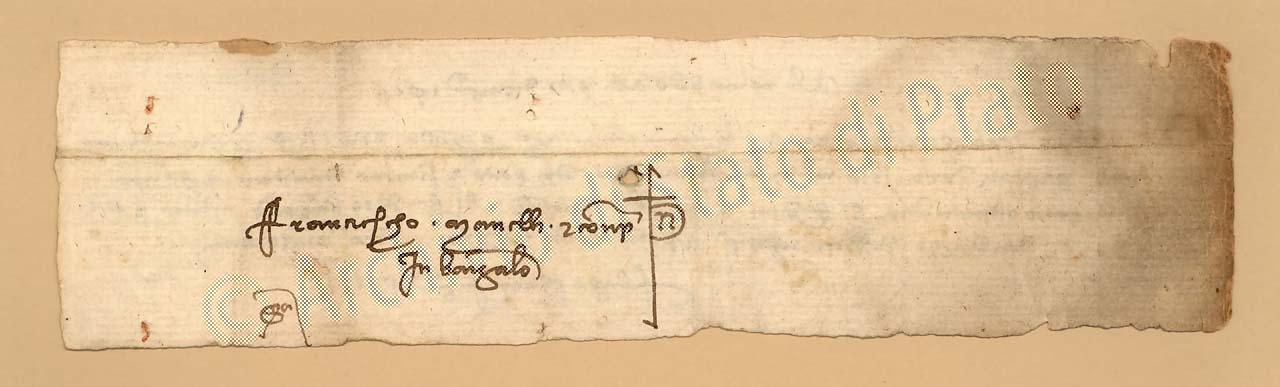 Franciescho · Manelli · e conp
In barzalona
© Archivio di Stato di Prato